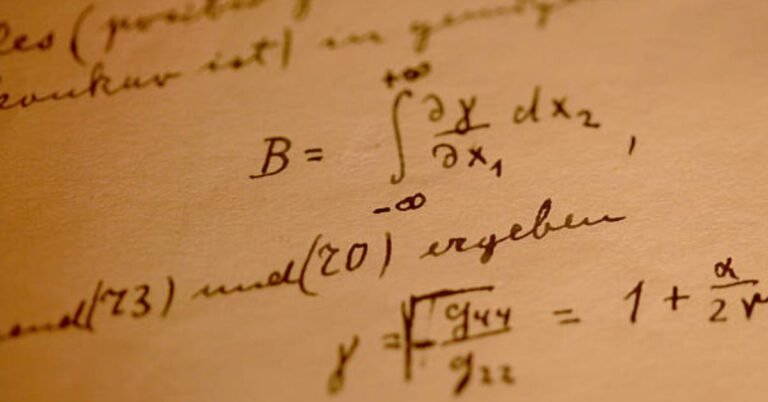 les (positiv
konkav ist) in
B = ∫_{-∞}^{+∞} ∂γ/∂x₁ dx₂ ,
und (73) und (70) ergeben
γ = √(-g₄₄/g₂₂) = 1 + α/2r